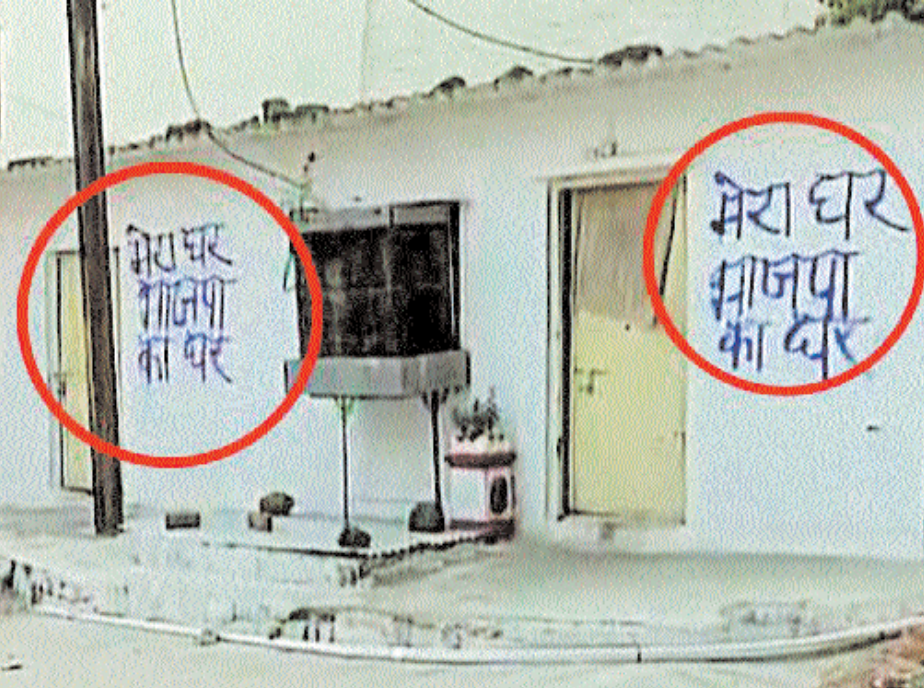 मेरा घर
भाजपा
का घर
मेरा घर
भाजपा
का घर